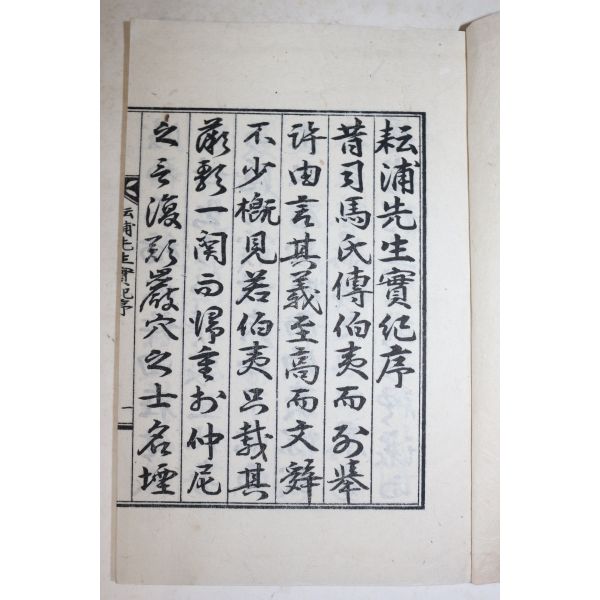 耘浦先生實紀序
昔司馬氏傳伯夷而列擧
許由言其義至高而文辭
不少概見若伯夷只載其
薇歌一関而歸重於仲尼
之言復歎巖穴之士名堙
耘浦先生實紀序
一